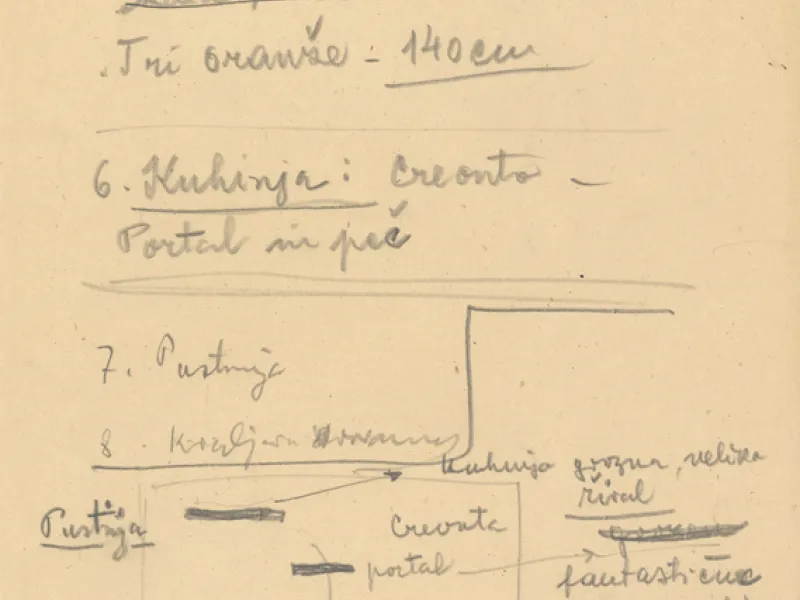 Tri oranže - 140 cm
6. Kuhinja: Creonta -
Portal in peč
7. Pustinja
8.
Kuhinja grozna, velika
žival
Pustinja
Creonta
portal
fantastične